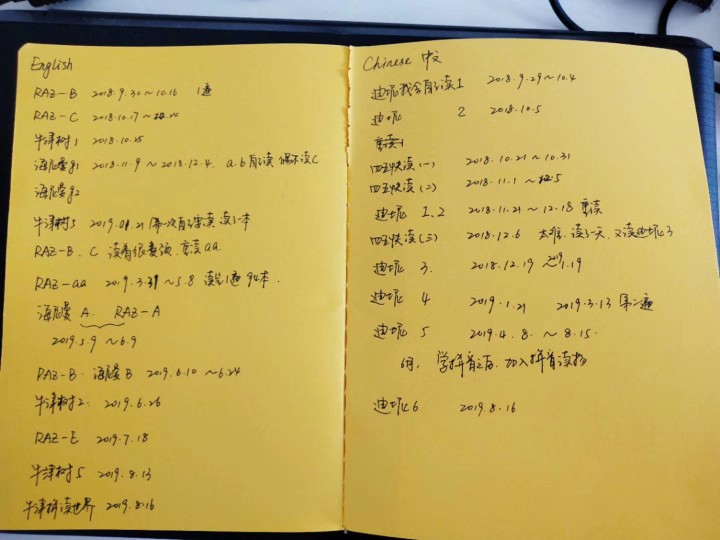 English
RAZ-B 2018.9.30~10.16 1遍
RAZ-C 2018.10.17~
牛津树1 2018.10.25
海尼曼g1 2018.11.9~2018.12.4. a.b自读 偶尔读C
海尼曼g2
牛津树5 2019.01.21 第一次自己拿读 读了一本
RAZ-B. C 读着很费颂, 重读aa.
RAZ-aa 2019.3.31~5.8 读完1遍 94本.
海尼曼 A. RAZ-A
2019.5.9~6.9
RAZ-B. 海尼曼B 2019.6.10~6.24
牛津树2. 2019.6.26
RAZ-E 2019.7.18
牛津树5 2019.8.13
牛津拼读世界 2019.8.16
Chinese 中文
迪呢我会自己读1 2018.9.29~10.4
迪呢 2 2018.10.5
四五快读(一) 2018.10.21~10.31
四五快读(二) 2018.11.1~12.5
迪呢 1.2 2018.11.21~12.18 重读
四五快读(三) 2018.12.6 太难, 读了一天, 又读迪呢3
迪呢 3. 2018.12.19~2019.1.19
迪呢 4 2019.1.21 2019.3.13 第二遍
迪呢 5 2019.4.8.~8.15.
6月, 学拼音之后, 加入拼音读物
迪呢6 2019.8.16